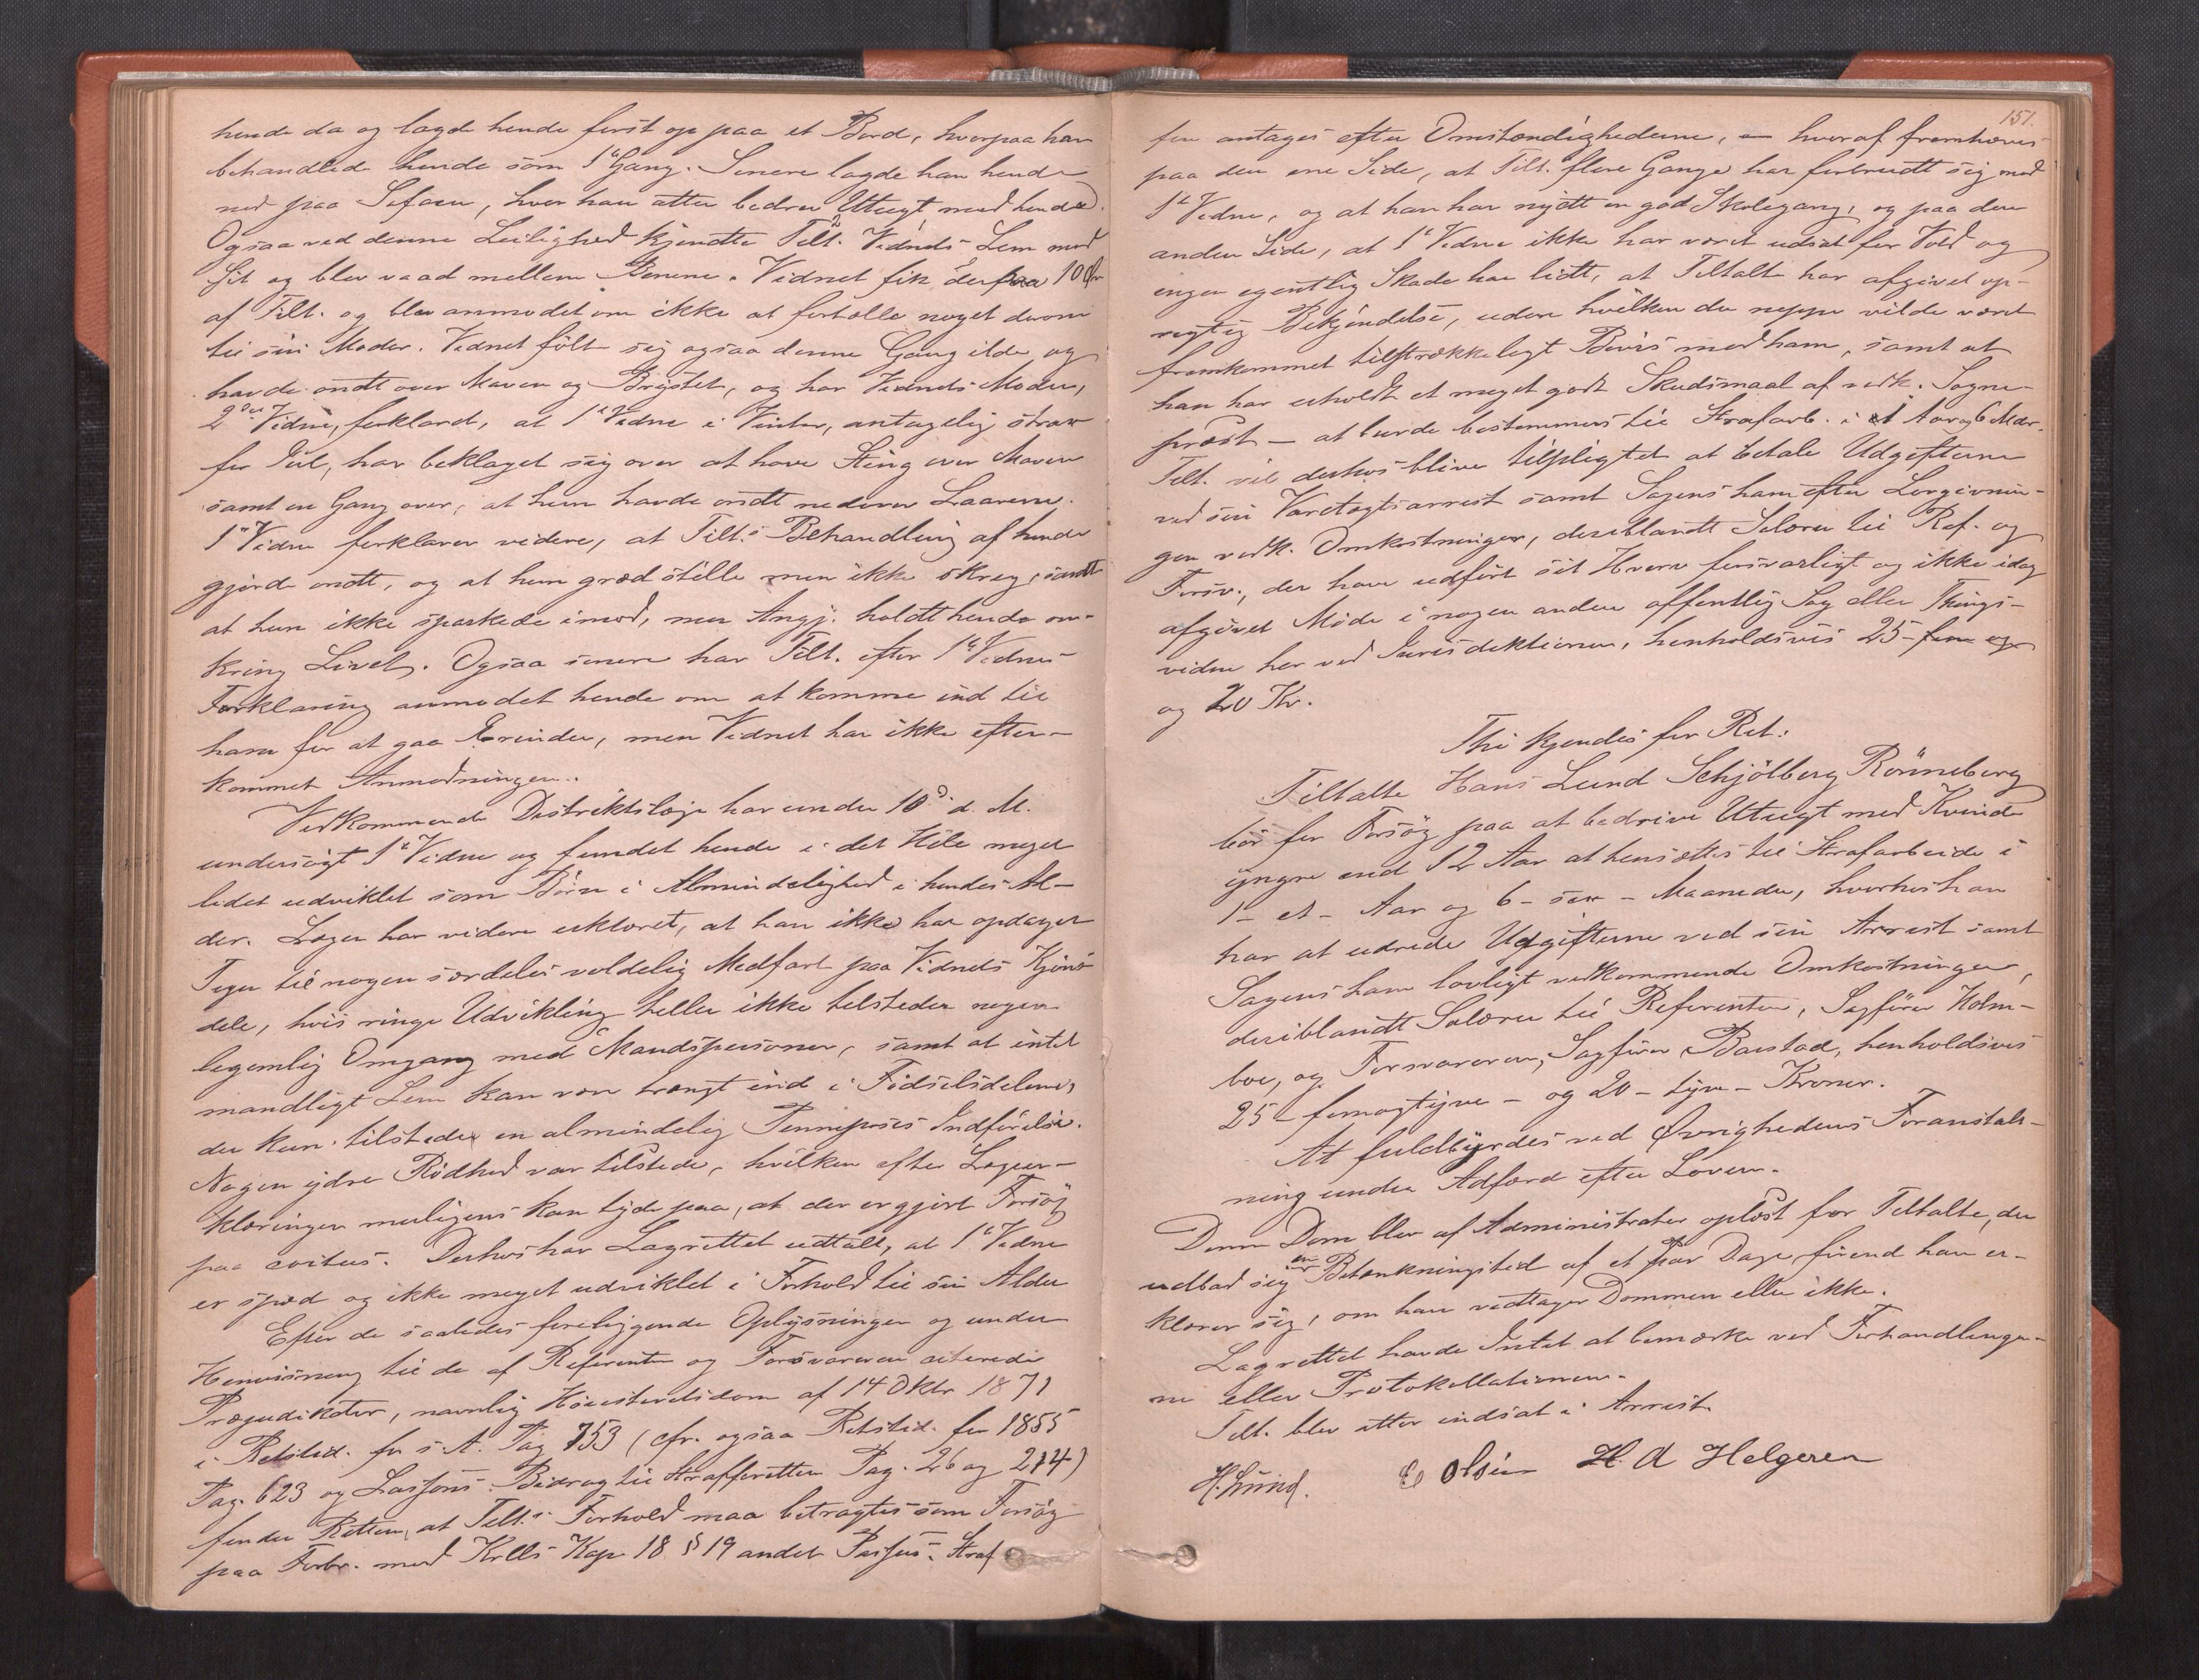 hende da og lagde hende først op paa et Bord, hvorpaa han
behandlede hende som 1ste Gang. Senere lagde han hende
ned paa Sofaen, hvor han atter bedrev Utugt med hende.
Ogsaa ved denne Leilighed kjendte Tilt. Vidnets Lem med
sit og blev vaad mellem Benene. Vidnet fik derpaa 10 Øre
af Tilt. og blev anmodet om ikke at fortælle noget derom
til sin Moder. Vidnet følte sig ogsaa denne Gang ilde og
havde ondt over Maven og Brystet, og har Vidnets Moder,
2det Vidne, forklaret, at 1ste Vidne i Vinter, antagelig strax
før Jul, har beklaget sig over at have Sting over Maven
samt en Gang over, at hun havde ondt nedover Laarene.
1ste Vidne forklarer videre, at Tilt.s Behandling af hende
gjorde ondt, og at hun græd stille men ikke skreg, samt
at hun ikke sparkede imod, men Angj. holdt hende om-
kring Livet. Ogsaa senere har Tilt. efter 1ste Vidnes
Forklaring anmodet hende om at komme ind til
ham for at gaa Erinder, men Vidnet har ikke efter-
kommet Anmodningen.
Vedkommende Distriktslæge har under 10de d. M.
undersøgt 1ste Vidne og fundet hende i det Hele meget
lidet udviklet som Børn i Almindelighed i hendes Al-
der. Lægen har videre erklæret, at han ikke har opdaget
Tegn til nogen særdeles voldelig Medfart paa Vidnets Kjøns-
dele, hvis ringe Udvikling heller ikke tilsteder nogen
legemlig Omgang med Mandspersoner, samt at intet
mandligt Lem kan være trængt ind i Fødselsdelene,
der kun tilsteder en almindelig Pennepose's Indførelse.
Nogen ydre Rødhed var tilstede, hvilken efter Lægeer-
klæringen muligens kan tyde paa, at der er gjort Forsøg
paa coitus. Derhos har Lagrettet udtalt, at 1ste Vidne
er spæd og ikke meget udviklet i Forhold til sin Alder
Efter de saaledes foreliggende Oplysninger og under
Henvisning til de af Referenten og Forsvareren citerede
Præjudikater, navnlig Høiesteretsdom af 14 Oktr 1871
i Retstid. for s. A. Pag 753 (cfr. ogsaa Retstid. for 1855
Pag. 623 og Lassons Bidrag til Strafferetten Pag. 26 og 214)
finder Retten, at Tilt.s Forhold maa betragtes som Forsøg
paa Forbr. mod Krlls Kap 18 § 19 andet Passus. Straf
151.
fen antages efter Omstændighederne, – hvoraf fremhæves
paa den ene Side, at Tilt. flere Gange har forbrudt sig mod
1ste Vidne, og at han har nydt en god Skolegang, og paa den
anden Side, at 1ste Vidne ikke har været udsat for Vold og
ingen egentlig Skade har lidt, at Tiltalte har afgivet op-
rigtig Bekjendelse, uden hvilken der neppe vilde været
fremkommet tilstrækkeligt Bevis mod ham, samt at
han har erholdt et meget godt Skudsmaal af vedk. Sogne-
præst – at burde bestemmes til Strafarb. i 1 Aar og 6 Mdr.
Tilt. vil derhos blive tilpligtet at betale Udgifterne
ved sin Varetægtsarrest samt Sagens ham efter Lovgivnin-
gen vedk. Omkostninger, deriblandt Salærer til Ref. og
Forsv., der have udført sit Hverv forsvarligt og ikke idag
afgivet Møde i nogen anden offentlig Sag eller Things-
vidne her ved Jurisdiktionen, henholdsvis 25 fem og
og 20 Kr.
Thi kjendes for Ret:
Tiltalte Hans Lund Schjølberg Rønneberg
bør for Forsøg paa at bedrive Utugt med Kvinde
yngre end 12 Aar at hensættes til Strafarbeide i
1 – et – Aar og 6 – sex – Maaneder, hvorhos han
har at udrede Udgifterne ved sin Arrest samt
Sagens ham lovligt vedkommende Omkostninger,
deriblandt Salærer til Referenten, Sagfører Holm-
boe, og Forsvareren, Sagfører Barstad, henholdsvis
25 – femogtyve – og 20 – tyve – Kroner.
At fuldbyrdes ved Øvrighedens Foranstalt-
ning under Adfærd efter Loven.
Denne Dom blev af Administrator oplæst for Tiltalte, der
udbad sig en Betænkningstid af et par Dage førend han er-
klærer sig, om han vedtager Dommen eller ikke.
Lagrettet havde Intet at bemærke ved Forhandlinger-
ne eller Protokollationen.
Tilt. blev atter indsat i Arrest.
H. Lund. E Olsen H. A Helgesen